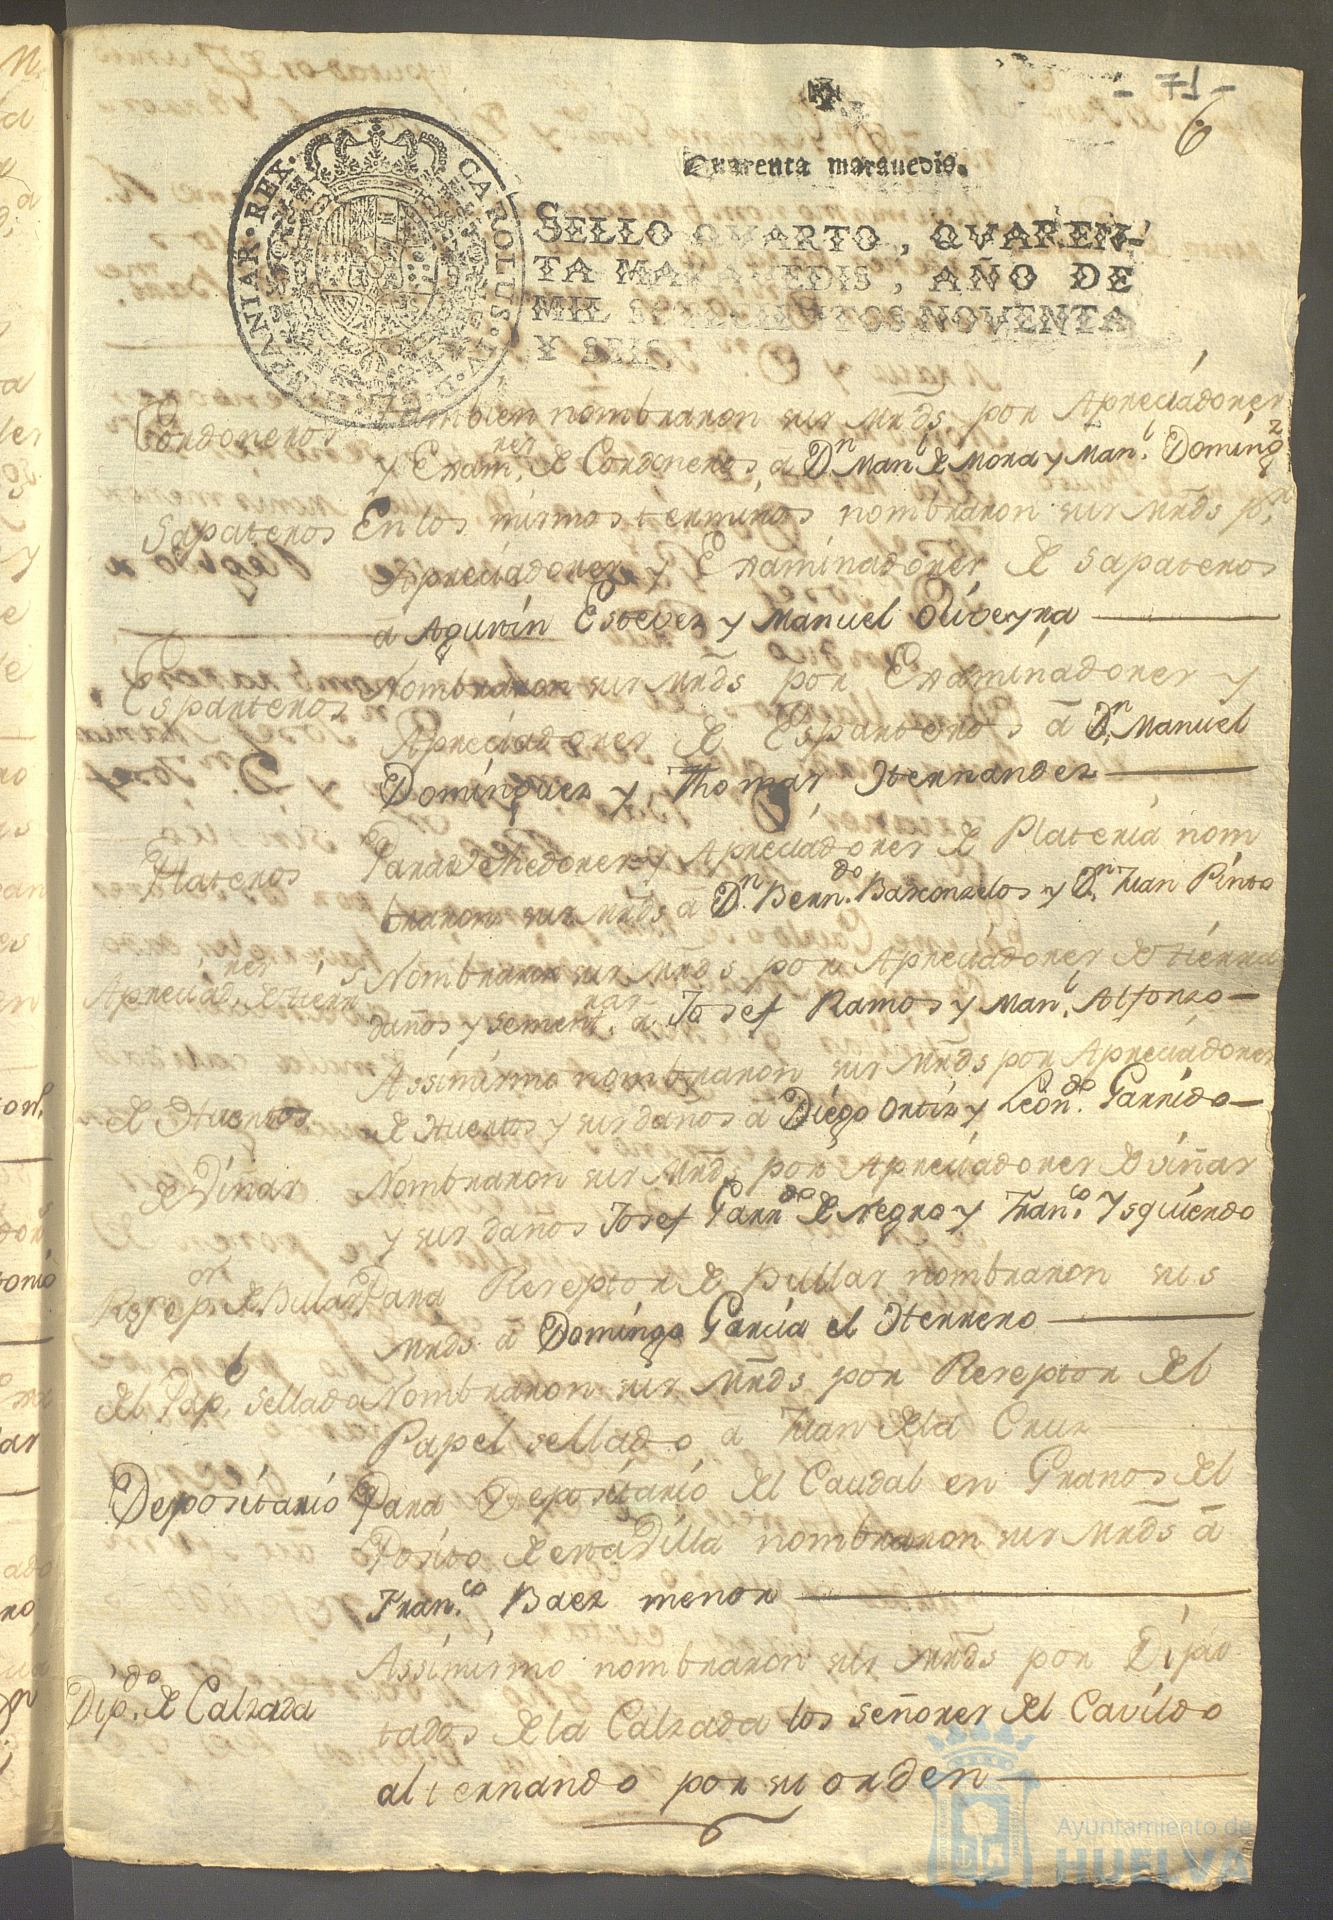 - 71 -
6
Quarenta maravedis.
SELLO QVARTO, QVAREN-
TA MARAVEDIS, AÑO DE
MIL SETECIENTOS NOVENTA
Y SEIS
CAROLUS · HISPANIAR · REX ·
Cordoneros
Tambien nombraron sus mrds por Apreciadores
y Exam.res de Cordoneros, a Dn Man.l de Mora y Man.l Doming.z
Sapateros
En los mismos terminos nombraron sus mrds p.r
Apreciadores y Examinadores de sapateros
a Agustin Estevez y Manuel Oliveyra
Esparteros
Nombraron sus mrds por Examinadores y
Apreciadores de Esparteros a Dn Manuel
Dominguez y Thomas Hernandez
Plateros
Para Vehedores y Apreciadores de Plateria nom
braron sus mrds a Dn Bern.do Basconzelos y Dn Juan Pinto
Apreciad.res de tierr.s
Nombraron sus mrds por Apreciadores de tierras
daños y sement.ras a Josef Ramos y Man.l Alfonzo
de Huertos
Assimismo nombraron sus mrds por Apreciadores
de Huertos y sus daños a Diego Ortiz y Leon.do Garrido
de Viñas
Nombraron sus mrds por Apreciadores de viñas
y sus daños Josef Garr.do de Negro y Fran.co Ysquierdo
Resep.or de Bulas
Para Reseptor de Bullas nombraron sus
mrds a Domingo Garcia el Herrero
del Pap.l sellado
Nombraron sus mrds por Reseptor del
Papel sellado a Juan de la Cruz
Depositario
Para Depositario del Caudal en Granos del
Posito de esta Villa nombraron sus mrds a
Fran.co Baez menor
Dip.do de Calzada
Assimismo nombraron sus mrds por Dipu
tados de la Calzada los señores del Cavildo
alternando por su orden
Ayuntamiento de
HUELVA